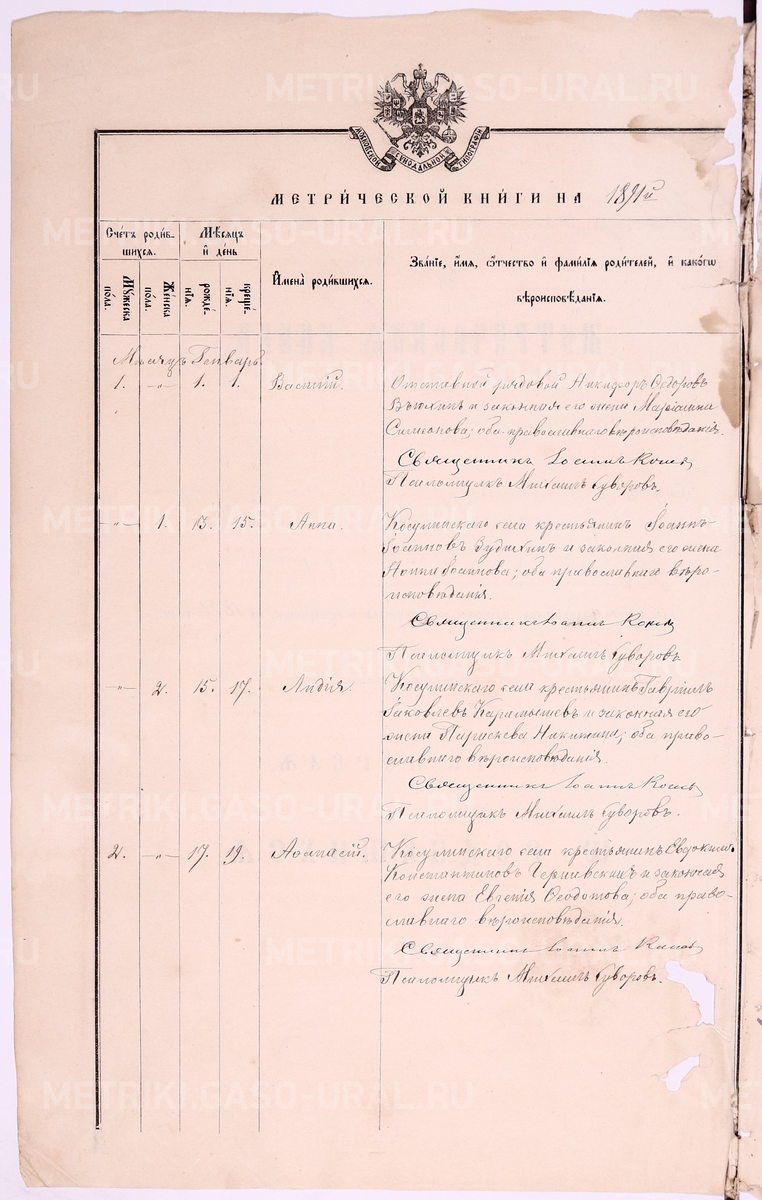 МОСКОВСКОЙ СѴНОДАЛЬНОЙ ТИПОГРАФІИ
МЕТРИ́ЧЕСКОЙ КНИ́ГИ НА 1891й
Сче́тъ роди́вшихсѧ.
Мꙋ́жеска по́ла.
Же́нска по́ла.
Мѣ́сяцъ и҆ де́нь
рожде́нїѧ.
креще́нїѧ.
И҆мена̀ роди́вшихсѧ.
Зва́нїе, и҆́мѧ, ѻ҆́тчество и҆ фами́лїѧ роди́телей, и҆ како́гѡ
вѣроисповѣ́данїѧ.
Мѣсяцъ Генварь.
1. -„- 1. 1. Василій. Отставной рядовой Никифоръ Ѳедоровъ
Вьюхинъ и законная его жена Маріанна
Симеонова; оба православнаго вѣроисповѣданія.
Священникъ Іоаннъ
Псаломщикъ Михаилъ Суворовъ.
-„- 1. 13. 15. Анна. Косулинскаго села крестьянинъ Іоаннъ
Іоанновъ и законная его жена
Іоаннова; оба православнаго вѣро-
исповѣданія.
Священникъ Іоаннъ
Псаломщикъ Михаилъ Суворовъ
-„- 2. 15. 17. Лидія. Косулинскаго села крестьянинъ Гавріилъ
Іаковлевъ Карамышевъ и законная его
жена Параскева Никитина; оба право-
славнаго вѣроисповѣданія.
Священникъ Іоаннъ
Псаломщикъ Михаилъ Суворовъ.
2. -„- 17. 19. Аѳанасій. Косулинскаго села крестьянинъ Евдокимъ
Константиновъ Черпиевскихъ и законная
его жена Евгенія Ѳеодотова; оба право-
славнаго вѣроисповѣданія.
Священникъ Іоаннъ
Псаломщикъ Михаилъ Суворовъ.
METRIKI.GASO-URAL.RU